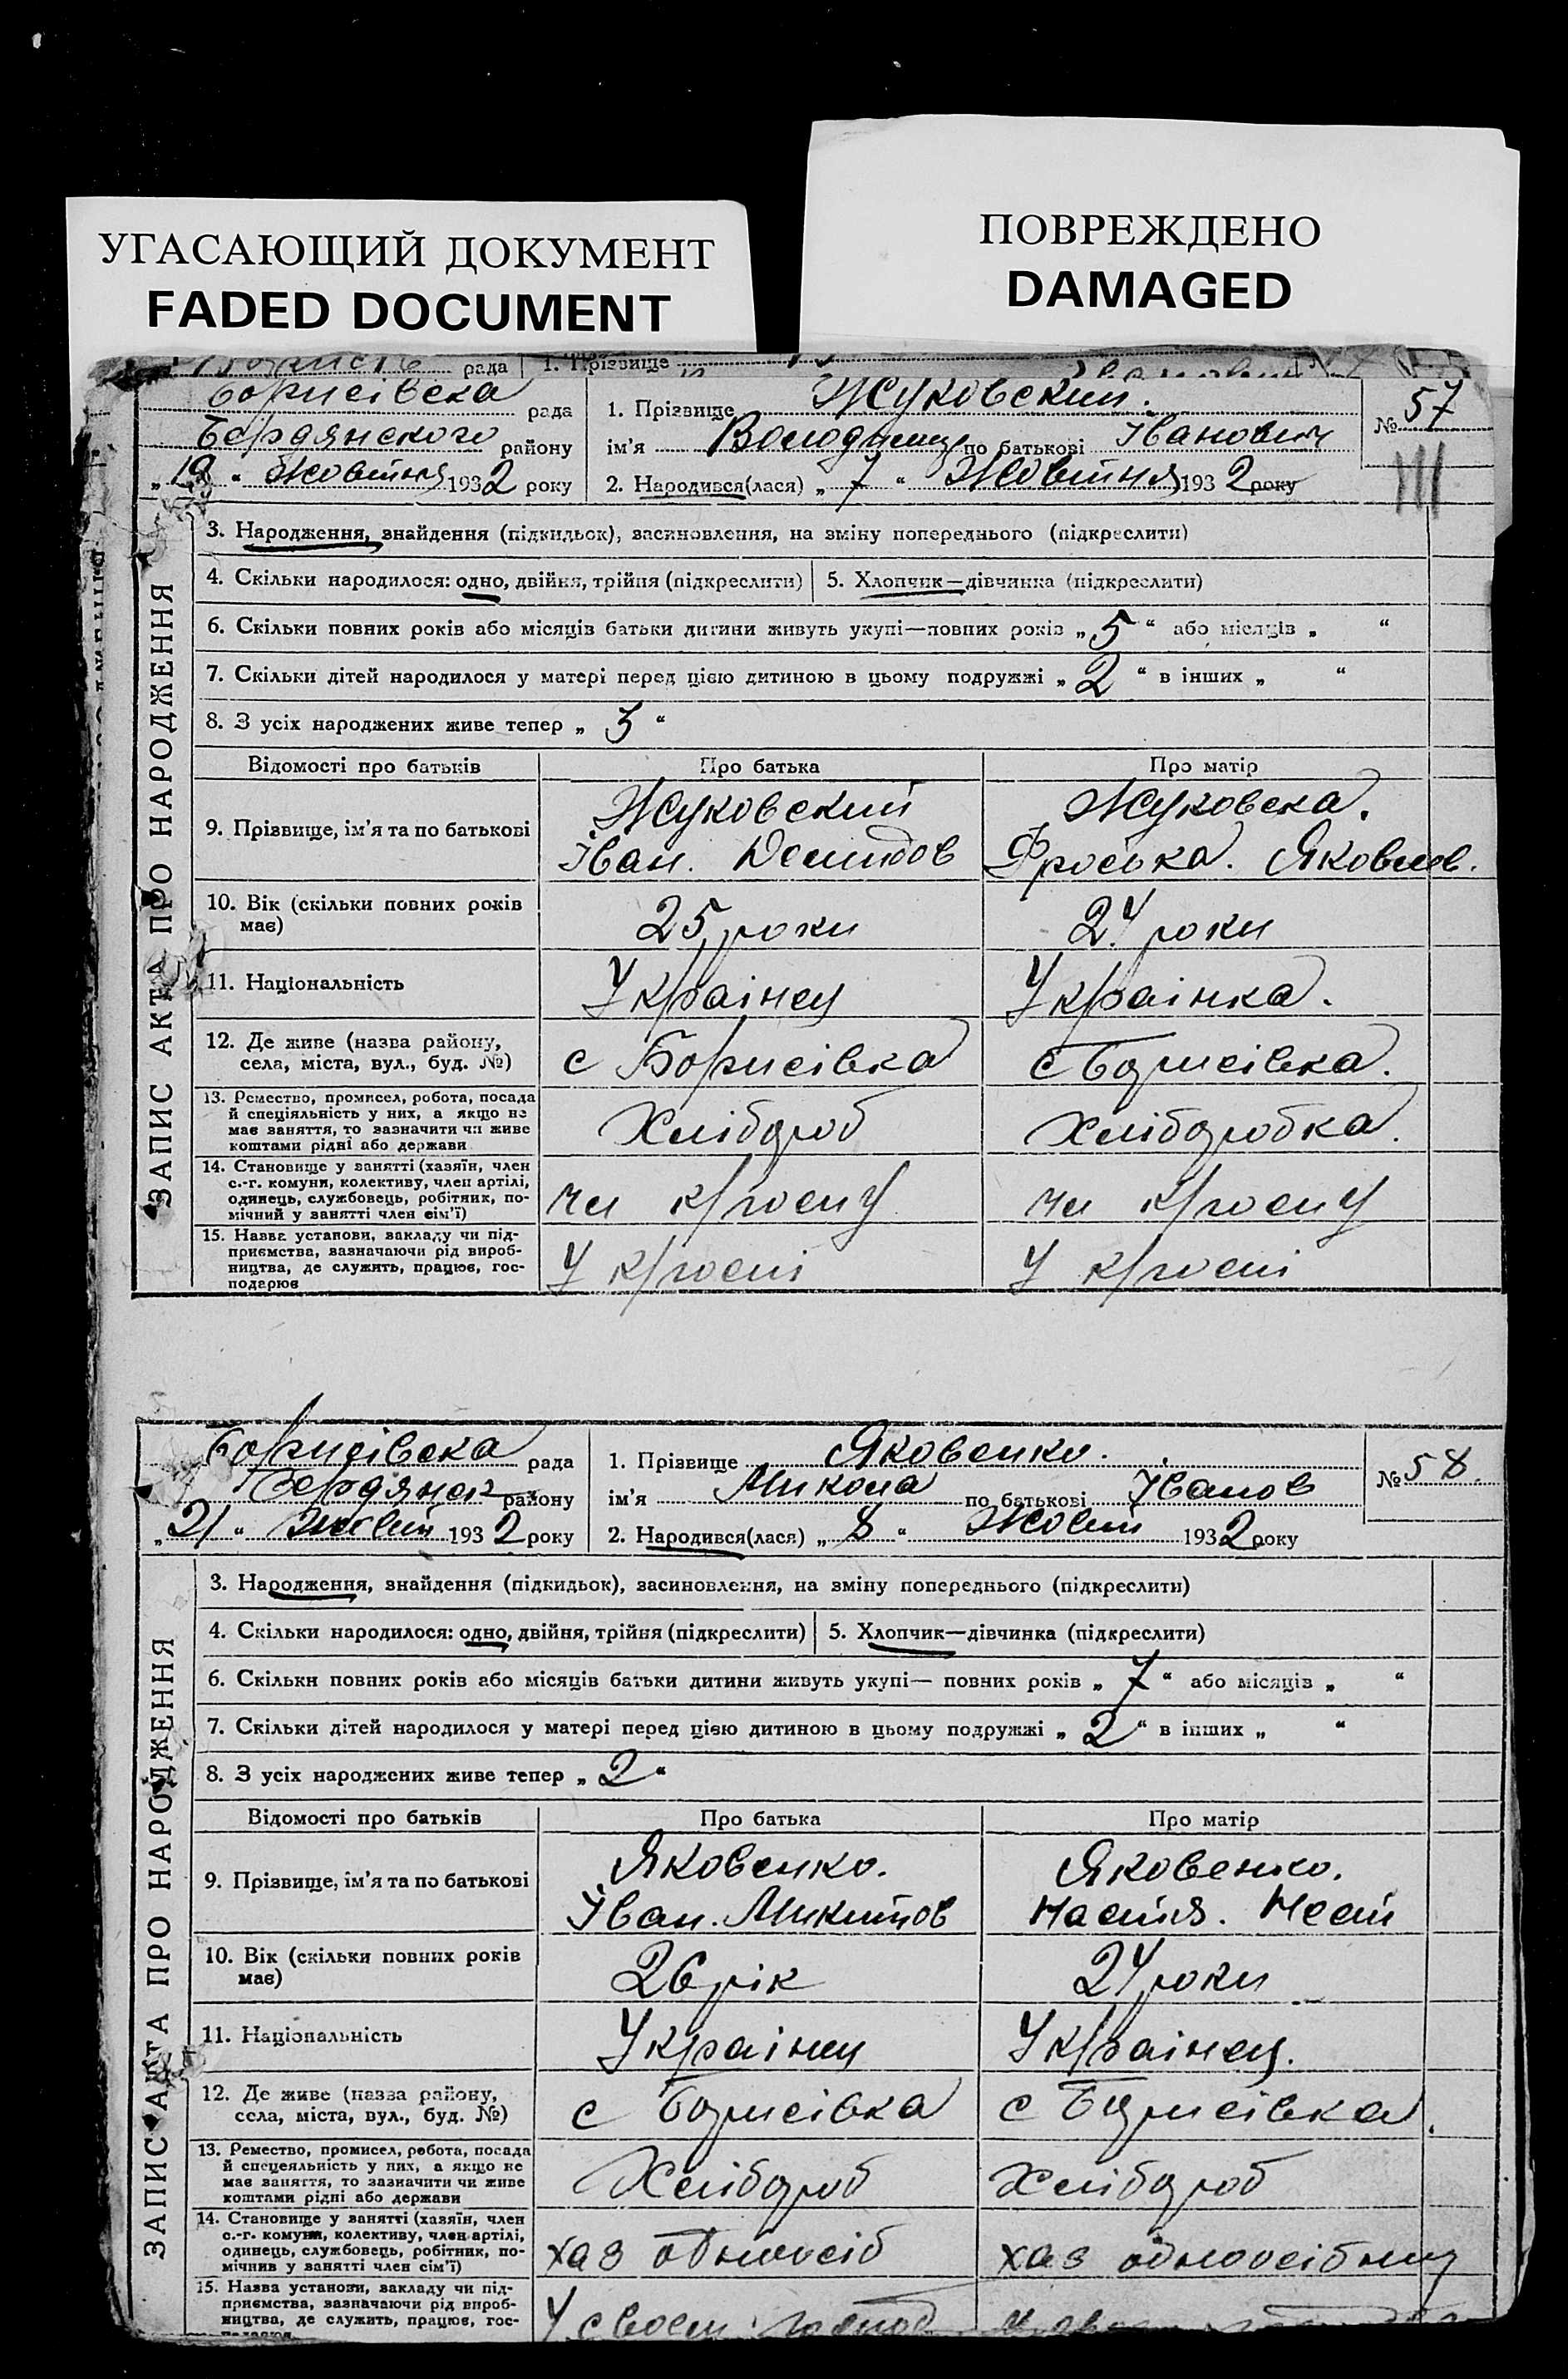 УГАСАЮЩИЙ ДОКУМЕНТ
FADED DOCUMENT
ПОВРЕЖДЕНО
DAMAGED
рада 1. Прізвище
Борисівска рада
Бердянского району
„19“ Жовтня 1932 року
1. Прізвище Жуковский.
ім'я Володимир по батькові Іванович
2. Народився(лася) „7“ Жовтня 1932 року
№ 57
III
ЗАПИС АКТА ПРО НАРОДЖЕННЯ
3. Народження, знайдення (підкидьок), засиновлення, на зміну попереднього (підкреслити)
4. Скільки народилося: одно, двійня, трійня (підкреслити) 5. Хлопчик—дівчинка (підкреслити)
6. Скільки повних років або місяців батьки дитини живуть укупі—повних років „5“ або місяців „ “
7. Скільки дітей народилося у матері перед цією дитиною в цьому подружжі „2“ в інших „ “
8. З усіх народжених живе тепер „3“
Відомості про батьків Про батька Про матір
9. Прізвище, ім'я та по батькові
Жуковский Жуковска.
Іван. Демидов Фроська. Яковлев.
10. Вік (скільки повних років
має)
25 роки 24 роки
11. Національність Украінец Украінка.
12. Де живе (назва району,
села, міста, вул., буд. №)
с Борисівка с Борисівка.
13. Ремество, промисел, робота, посада
й спеціяльність у них, а якщо не
має заняття, то зазначити чи живе
коштами рідні або держави
Хлібороб Хліборобка.
14. Становище у занятті (хазяїн, член
с.-г. комуни, колективу, член артілі,
одинець, службовець, робітник, по-
мічний у занятті член сім'ї)
чл чл
15. Назва установи, закладу чи під-
приємства, зазначаючи рід вироб-
ництва, де служить, працює, гос-
подарює
У У
Борисівска рада
Бердянск району
„21“ Жовт 1932 року
1. Прізвище Яковенко.
ім'я Микола по батькові Іванов
2. Народився(лася) „8“ Жовт 1932 року
№ 58
ЗАПИС АКТА ПРО НАРОДЖЕННЯ
3. Народження, знайдення (підкидьок), засиновлення, на зміну попереднього (підкреслити)
4. Скільки народилося: одно, двійня, трійня (підкреслити) 5. Хлопчик—дівчинка (підкреслити)
6. Скільки повних років або місяців батьки дитини живуть укупі— повних років „7“ або місяців „ “
7. Скільки дітей народилося у матері перед цією дитиною в цьому подружжі „2“ в інших „ “
8. З усіх народжених живе тепер „2“
Відомості про батьків Про батька Про матір
9. Прізвище, ім'я та по батькові
Яковенко. Яковенко.
Іван. Микитов Настя. Нест
10. Вік (скільки повних років
має)
26 рік 24 роки
11. Національність Украінец Украінец.
12. Де живе (назва району,
села, міста, вул., буд. №)
с Борисівка с Борисівка.
13. Ремество, промисел, робота, посада
й спецеяльність у них, а якщо не
має заняття, то зазначити чи живе
коштами рідні або держави
Хлібороб Хлібороб
14. Становище у занятті (хазяїн, член
с.-г. комуни, колективу, член артілі,
одинець, службовець, робітник, по-
мічнив у занятті член сім'ї)
хаз одноосіб хаз одноосібниц
15. Назва установи, закладу чи під-
приємства, зазначаючи рід вироб-
ництва, де служить, працює, гос-
У своем